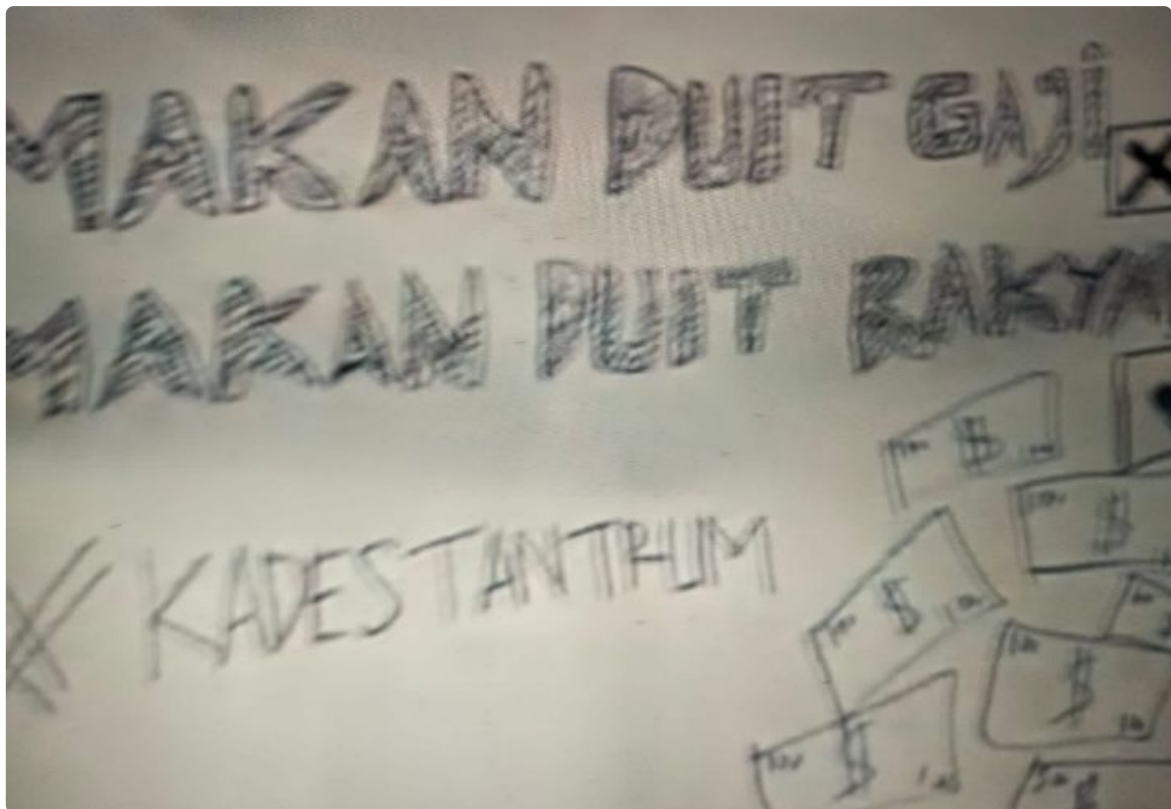 MAKAN DUIT GAJi
MAKAN DUIT RAKYA
#KADESTANTRUM
$
$
$
$
$